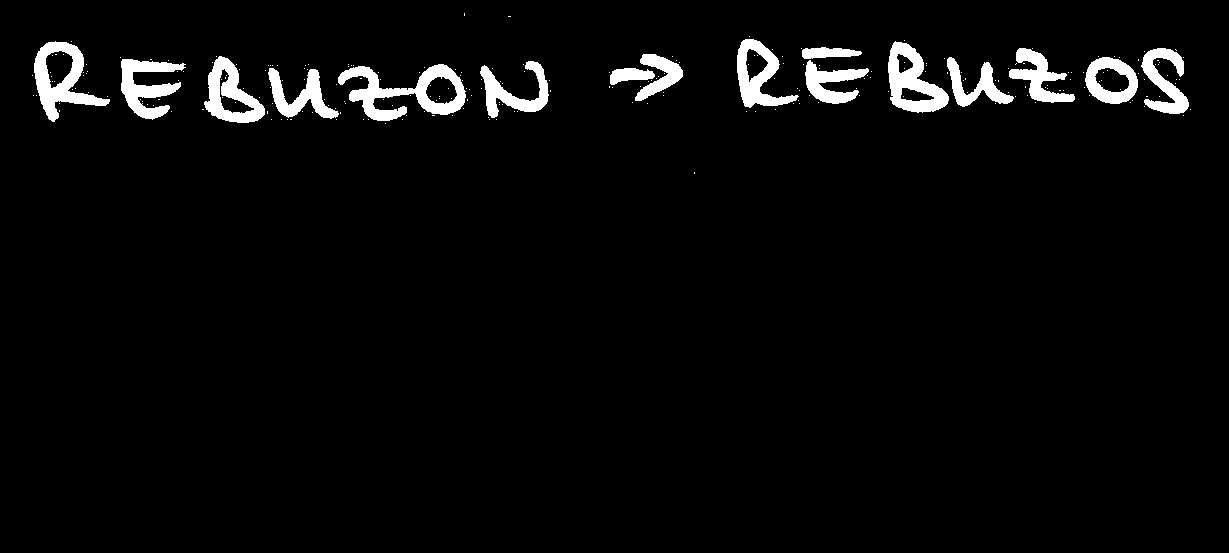 REBUZON → REBUZOS